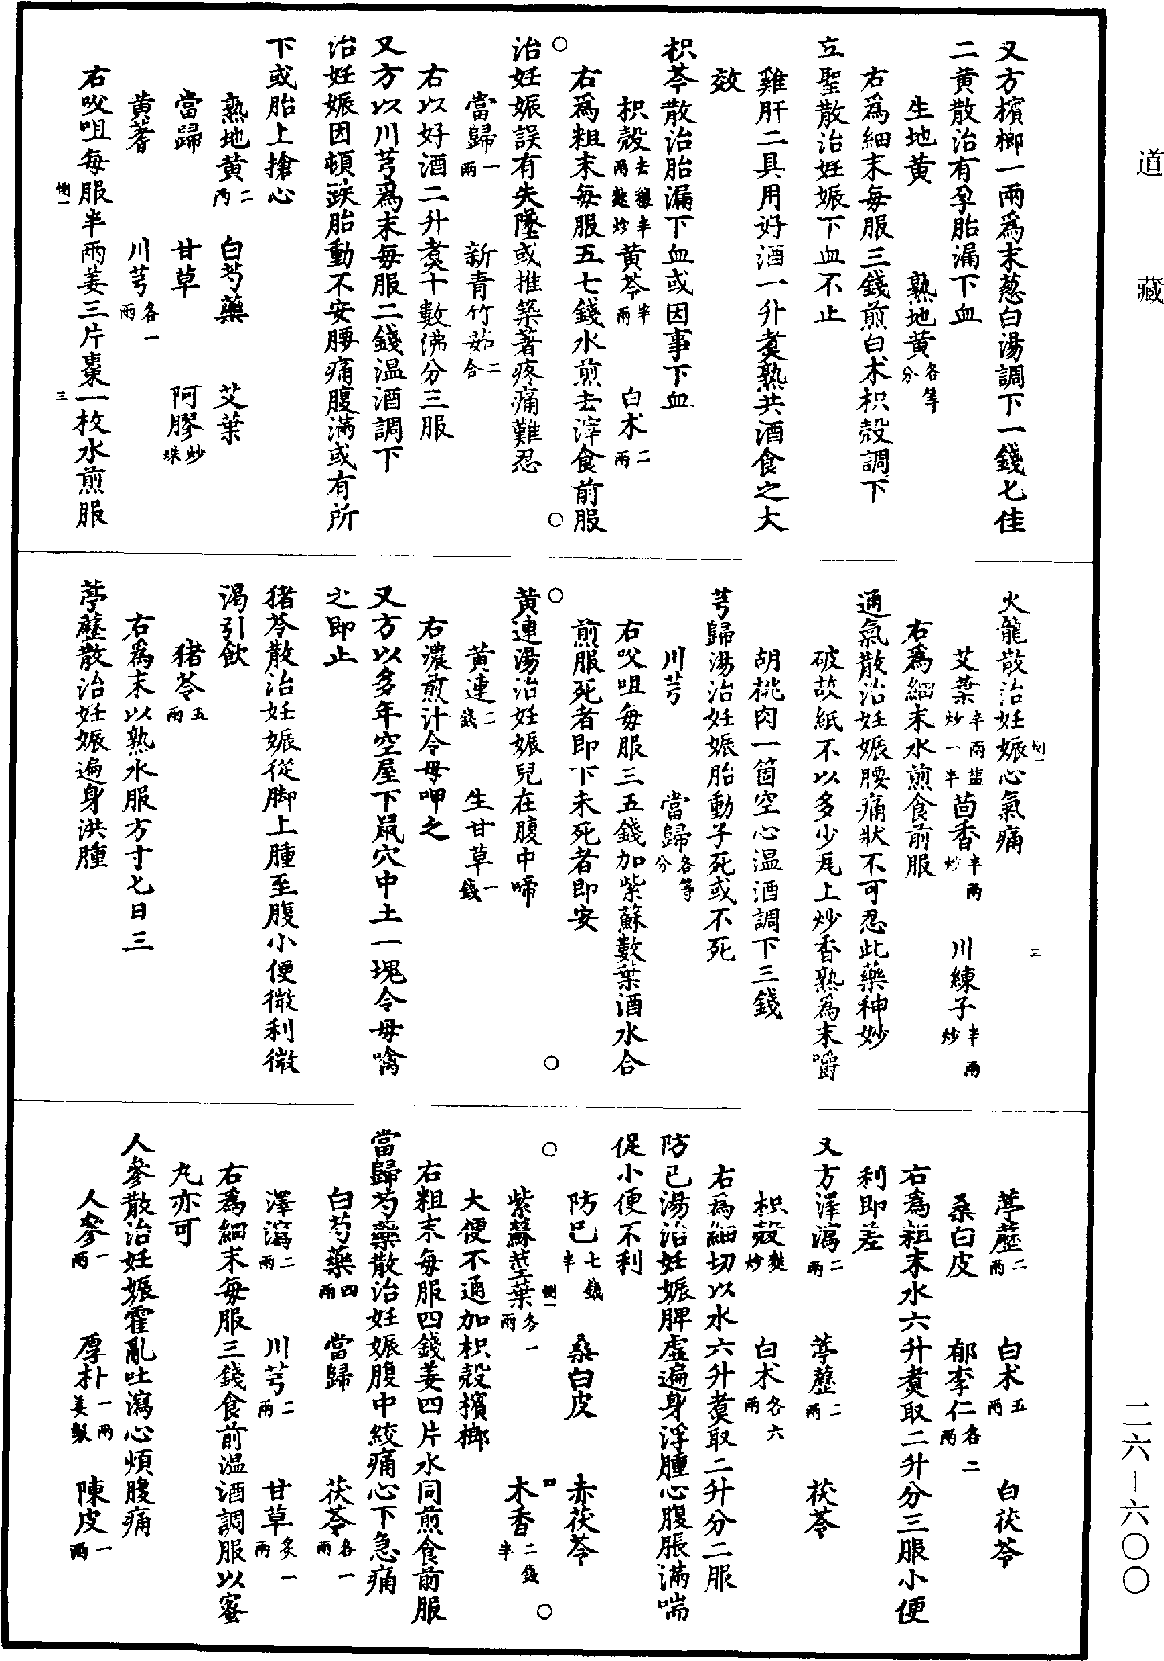 道藏
又方檳榔一兩為末葱白湯調下一錢匕佳
二黃散治有孕胎漏下血
生地黃　熟地黃各等分
右為細末每服三錢煎白术枳殼調下
立聖散治妊娠下血不止
雞肝二具用好酒一升煑熟共酒食之大
效
枳芩散治胎漏下血或因事下血
枳殼去穰半兩麩炒　黃芩半兩　白术二兩
右為粗末每服五七錢水煎去滓食前服
治妊娠誤有失墜或推築著疼痛難忍
當歸一兩　新青竹茹二合
右以好酒二升煑十數沸分三服
又方以川芎為末每服二錢温酒調下
治妊娠因頓跌胎動不安腰痛腹滿或有所
下或胎上搶心
熟地黃二兩　白芍藥　艾葉
當歸　甘草　阿膠炒珠
黃蓍　川芎各一兩
右㕮咀每服半兩姜三片棗一枚水煎服
火龍散治妊娠心氣痛
艾葉半兩盐炒一半　茴香半兩炒　川練子半兩炒
右為細末水煎食前服
通氣散治妊娠腰痛狀不可忍此藥神妙
破故紙不以多少瓦上炒香熟為末嚼
胡桃肉一箇空心温酒調下三錢
芎歸湯治妊娠胎動子死或不死
川芎　當歸各等分
右㕮咀每服三五錢加紫蘇數葉酒水合
煎服死者即下未死者即安
黃連湯治妊娠兒在腹中啼
黃連二錢　生甘草一錢
右濃煎汁令母呷之
又方以多年空屋下鼠穴中土一塊令母噙
之即止
猪苓散治妊娠從脚上腫至腹小便微利微
渴引飲
猪苓五兩
右為末以熟水服方寸匕日三
葶藶散治妊娠遍身洪腫
葶藶二兩　白术五兩　白茯苓
桑白皮　郁李仁各二兩
右為粗末水六升煑取二升分三服小便
利即差
又方澤瀉二兩　葶藶二兩　茯苓
枳殼麩炒　白术各六兩
右為細切以水六升煑取二升分二服
防已湯治妊娠脾虛遍身浮腫心腹脹滿喘
促小便不利
防已七錢半　桑白皮　赤茯苓
紫蘇莖葉各一兩　木香二錢半
大便不通加枳殼檳榔
右粗末每服四錢姜四片水同煎食前服
當歸芍藥散治妊娠腹中絞痛心下急痛
白芍藥四兩　當歸　茯苓各一兩
澤瀉二兩　川芎二兩　甘草炙一兩
右為細末每服三錢食前温酒調服以蜜
丸亦可
人參散治妊娠霍亂吐瀉心煩腹痛
人參一兩　厚朴一兩姜製　陳皮一兩
二六－六〇〇